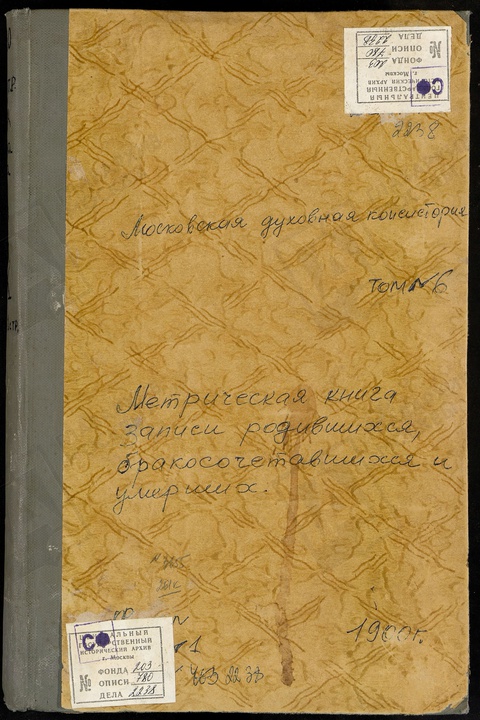 ЦЕНТРАЛЬНЫЙ
ГОСУДАРСТВЕННЫЙ
ИСТОРИЧЕСКИЙ АРХИВ
г. Москвы
ФОНДА 203
№ ОПИСИ 780
ДЕЛА 2238
СФ
2238
Московская духовная консистория
том № 6
Метрическая книга
записи родившихся,
бракосочетавшихся и
умерших.
1900 г.
ЦЕНТРАЛЬНЫЙ
ГОСУДАРСТВЕННЫЙ
ИСТОРИЧЕСКИЙ АРХИВ
г. Москвы
СФ
ФОНДА 203
№ ОПИСИ 780
ДЕЛА 2238